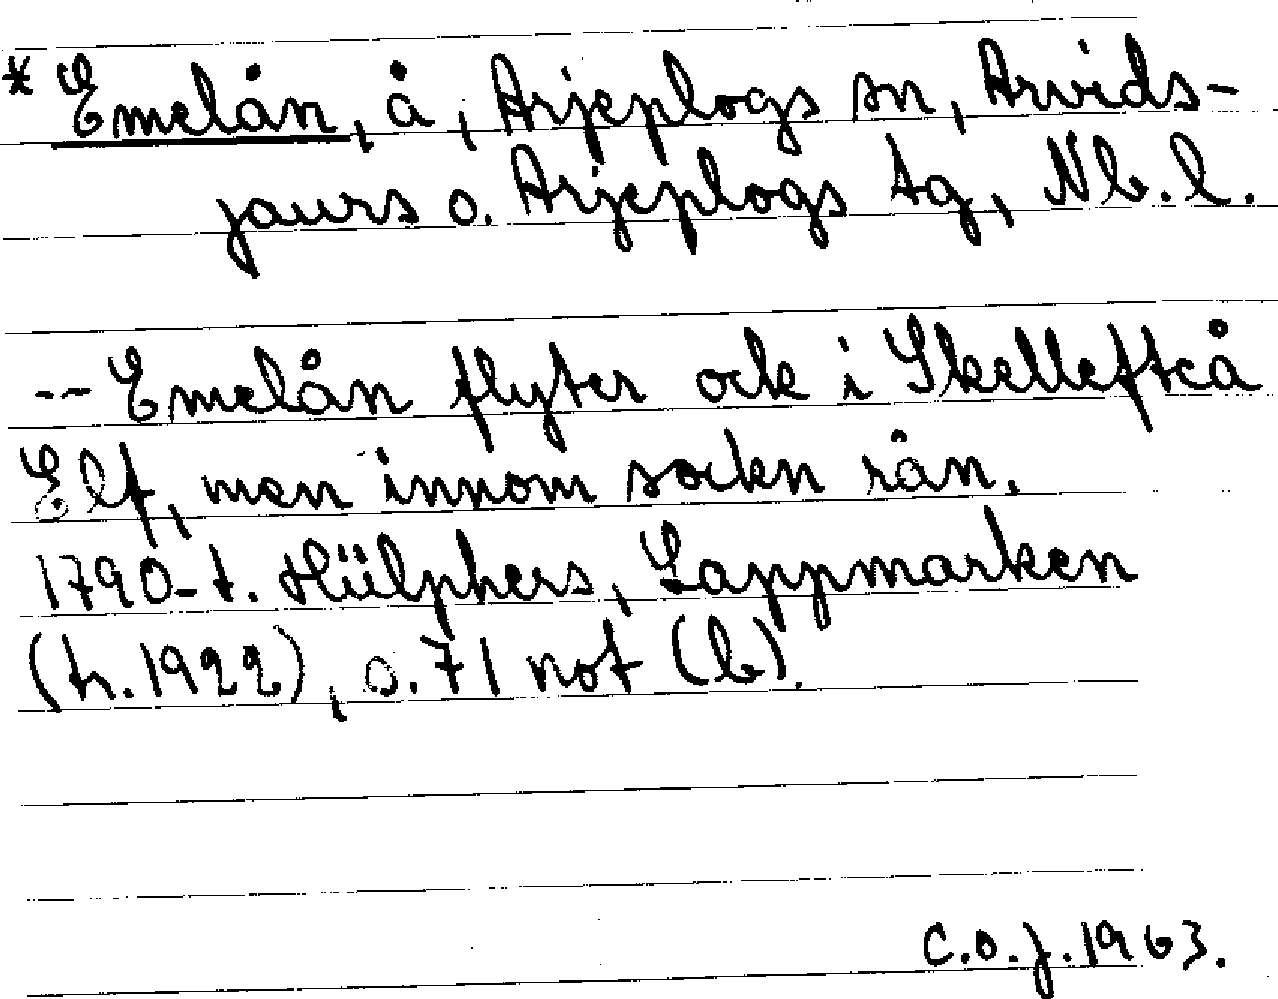 * Emelån, å, Arjeplogs sn, Arvids-
jaurs o. Arjeplogs tg, Nb. l.
-- Emelån flyter ock i Skellefteå
Elf, men innom sockn rån.
1790-t. Hülphers, Lappmarken
(tr. 1922), s. 71 not (b).
C.O.J. 1963.